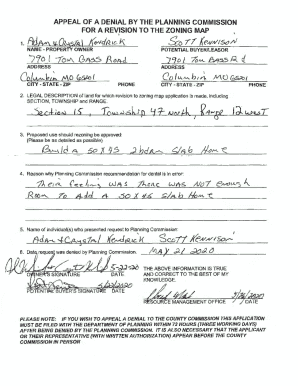 APPEAL OF A DENIAL BY THE PLANNING COMMISSION
FOR A REVISION TO THE ZONING MAP
1. Adam & Crystal Kendrick Scott Kennison
NAME - PROPERTY OWNER POTENTIAL BUYER/LEASOR
7901 Tom Bass Road 7901 Tom Bass Rd
ADDRESS ADDRESS
Columbia MO 65201 Columbia MO 65201
CITY - STATE - ZIP PHONE CITY - STATE - ZIP PHONE
2. LEGAL DESCRIPTION of land for which revision to zoning map application is made, including
SECTION, TOWNSHIP and RANGE.
Section 15, Township 47 north, Range 12 west
3. Proposed use should rezoning be approved:
(Please be as detailed as possible)
Build a 50x45 2bdrm Slab Home
4. Reason why Planning Commission recommendation for denial is in error:
Their feeling was there was not enough
Room to Add a 50x45 Slab Home
5. Name of individual(s) who presented request to Planning Commission:
Adam & Crystal Kendrick Scott Kennison
6. Date request was denied by Planning Commission: MAY 21 2020
5-22-20
OWNER'S SIGNATURE DATE
THE ABOVE INFORMATION IS TRUE
AND CORRECT TO THE BEST OF MY
KNOWLEDGE.
POTENTIAL BUYER'S SIGNATURE DATE
RESOURCE MANAGEMENT OFFICE DATE
PLEASE NOTE: IF YOU WISH TO APPEAL A DENIAL TO THE COUNTY COMMISSION THIS APPLICATION
MUST BE FILED WITH THE DEPARTMENT OF PLANNING WITHIN 72 HOURS (THREE WORKING DAYS)
AFTER BEING DENIED BY THE PLANNING COMMISSION. IT IS ALSO NECESSARY THAT THE APPLICANT
OR THEIR REPRESENTATIVE (WITH WRITTEN AUTHORIZATION) APPEAR BEFORE THE COUNTY
COMMISSION IN PERSON